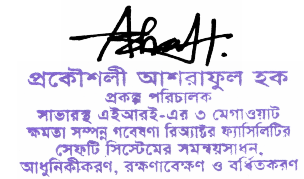 প্রকৌশলী আশরাফুল হক
প্রকল্প পরিচালক
সাভারস্থ এইআরই-এর ৩ মেগাওয়াট
ক্ষমতা সম্পন্ন গবেষণা রিঅ্যাক্টর ফ্যাসিলিটির
সেফটি সিস্টেমের সমন্বয়সাধন,
আধুনিকীকরণ, রক্ষণাবেক্ষণ ও বর্ধিতকরণ